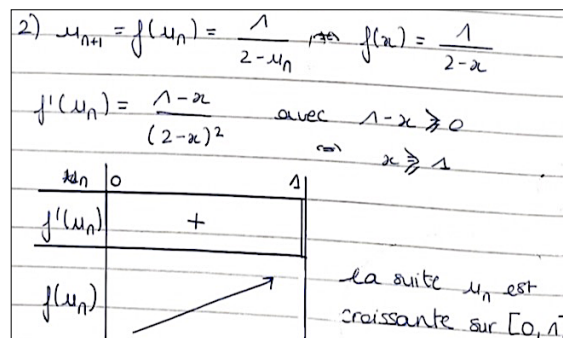 2) u_{n+1} = f(u_n) = 1/(2-u_n) f(x) = 1/(2-x)
f'(u_n) = (1-x)/(2-x)² avec 1-x ⩾ 0
⇔ x ⩾ 1
u_n 0 1
f'(u_n) +
f(u_n)
la suite u_n est
croissante sur [0,1]